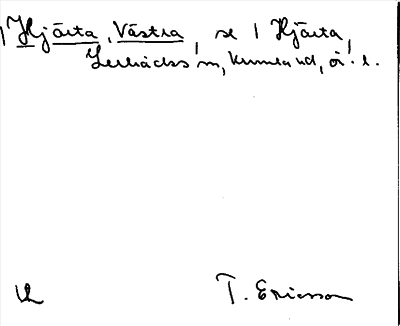 1 Hjärta, Västra, se 1 Hjärta,
Lerbäcks sn, Kumla hd, ör. l.
T. Ericson